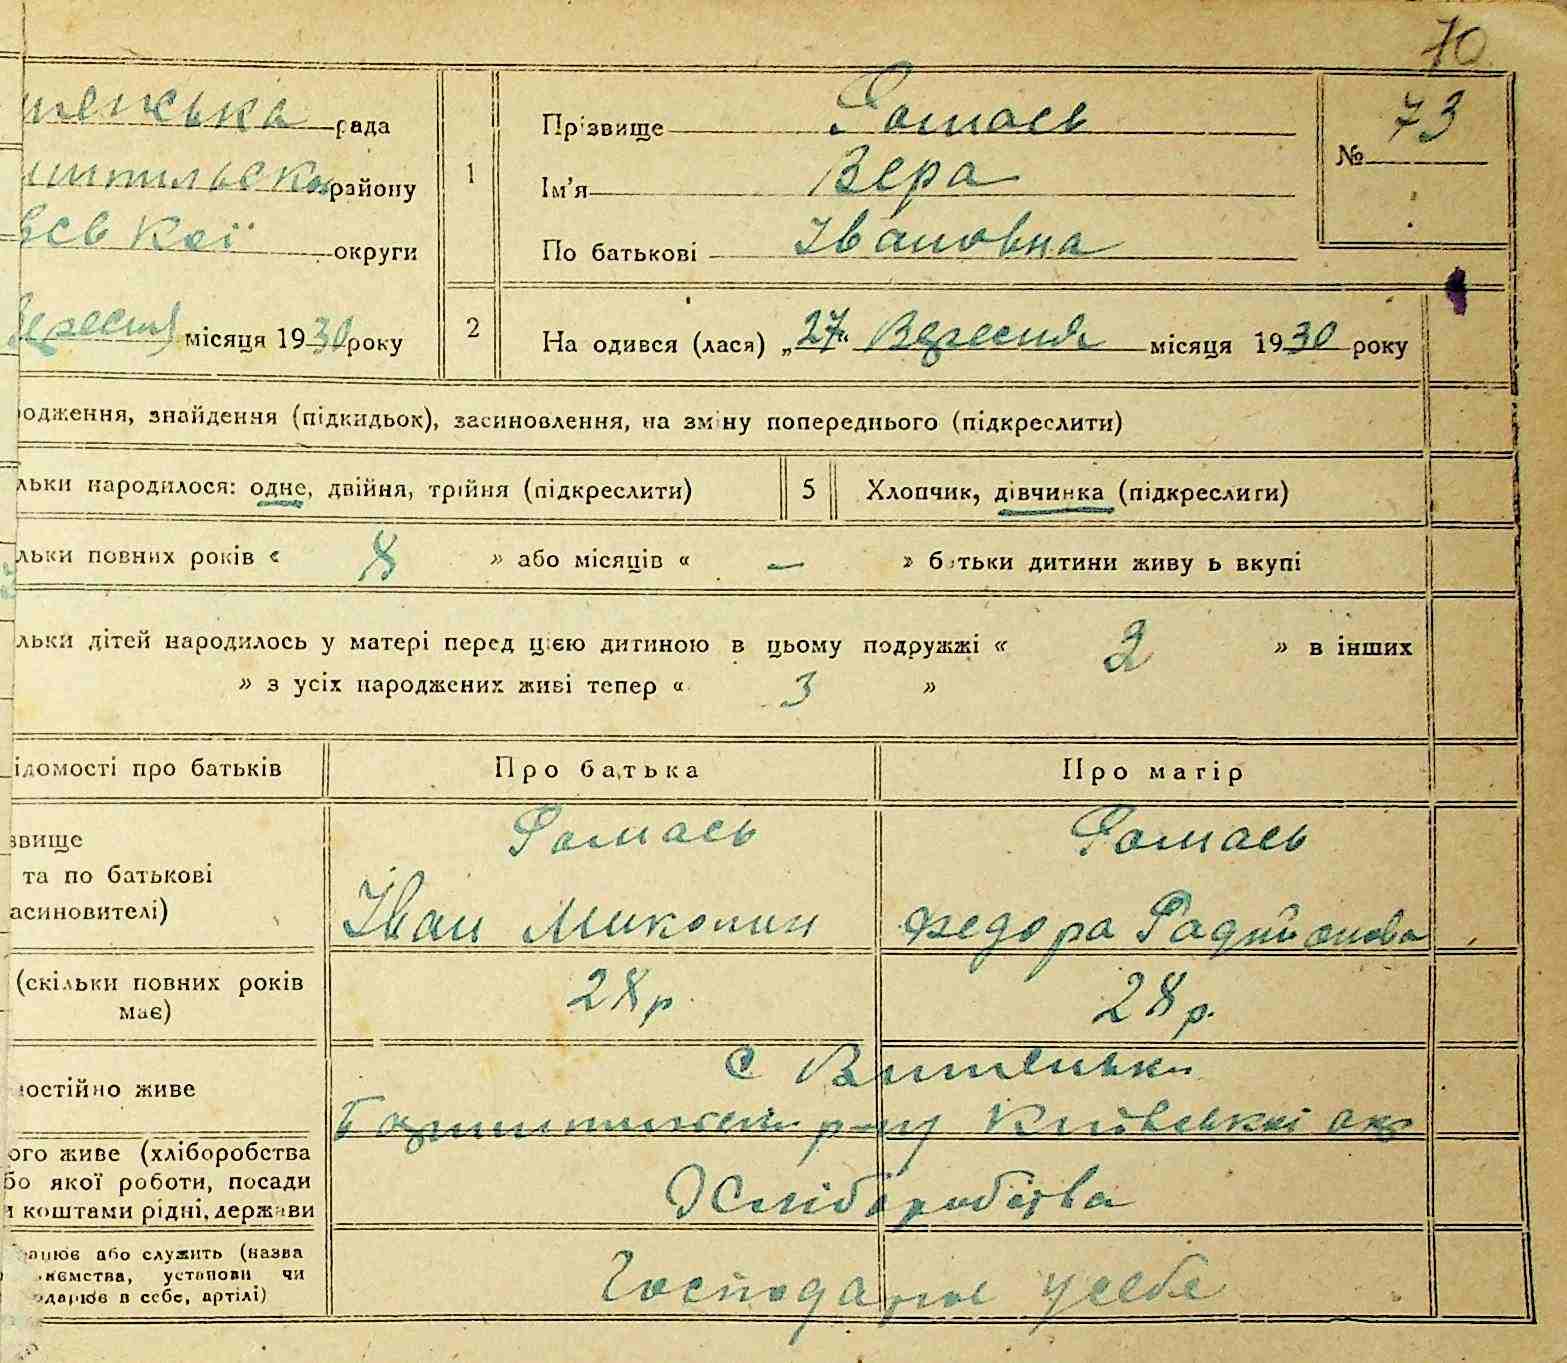 70
тенська рада
районну
вської округи
Вересня місяця 1930 року
1
Прізвище Ромась
Ім'я Вера
По батькові Івановна
№ 73
2
На одився (лася) „27" Вересня місяця 1930 року
одження, знайдення (підкидьок), засиновлення, на зміну попереднього (підкреслити)
льки народилося: одне, двійня, трійня (підкреслити)
5
Хлопчик, дівчинка (підкреслити)
льки повних років « 8 » або місяців « — » батьки дитини живу ь вкупі
льки дітей народилось у матері перед цією дитиною в цьому подружжі « 2 » в інших
» з усіх народжених живі тепер « 3 »
ідомості про батьків
Про батька
Про матір
звище
та по батькові
асиновителі)
Ромась
Іван Миколин
Ромась
Федора Радионова
(скільки повних років
має)
28 р.
28 р.
постійно живе
с Витеньки
Київської окр
ого живе (хліборобства
бо якої роботи, посади
и коштами рідні, держави
Хліборобства
рацює або служить (назва
ємства, установи чи
одарює в себе, артілі)
Господарює у себе